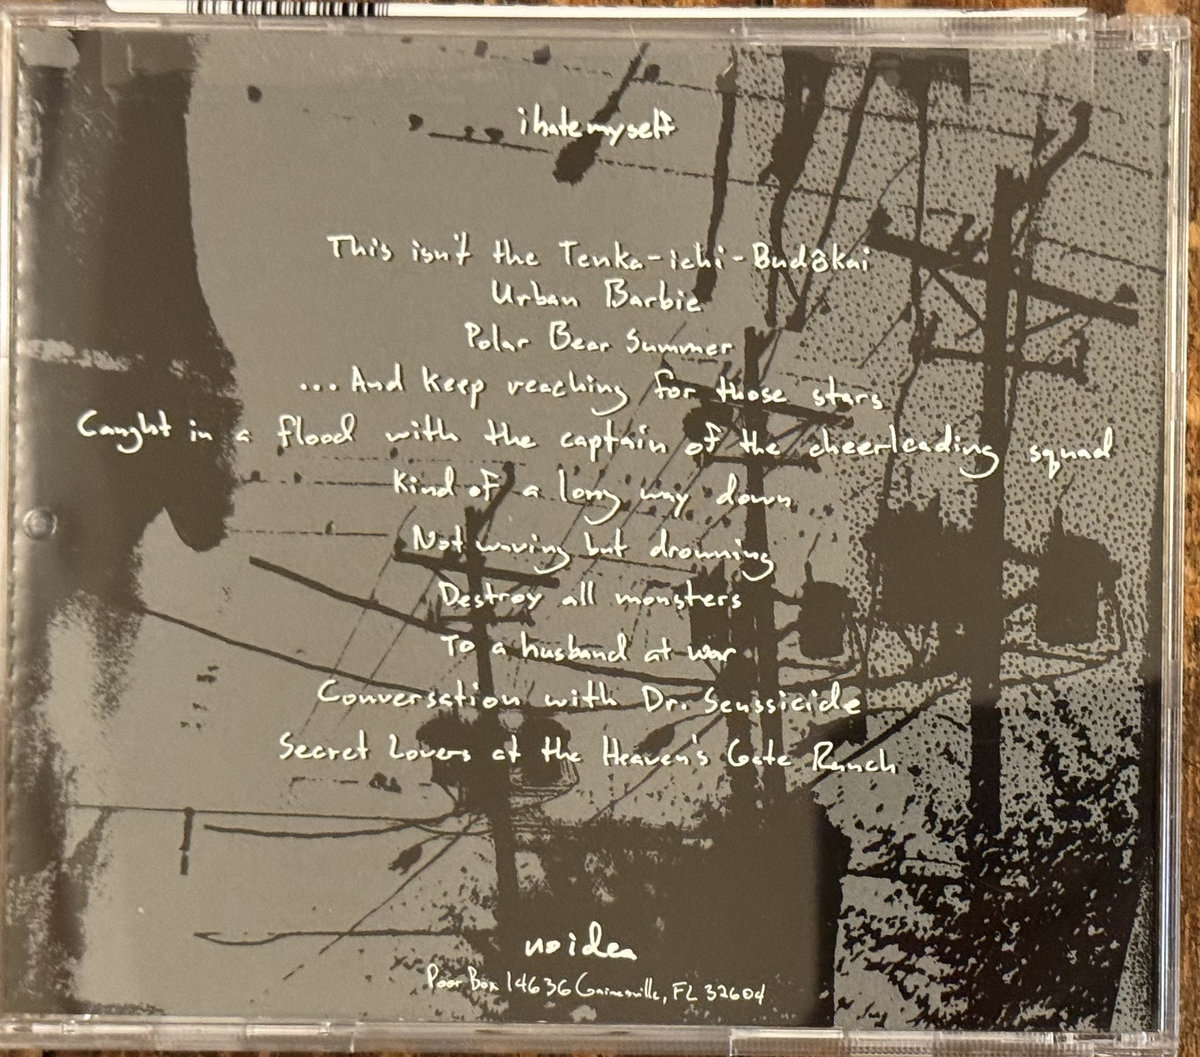 ihatemyself
This isn't the Tenka-ichi-Budôkai
Urban Barbie
Polar Bear Summer
... And keep reaching for those stars
Caught in a flood with the captain of the cheerleading squad
Kind of a long way down
Not waving but drowning
Destroy all monsters
To a husband at war
Conversation with Dr. Seussicide
Secret Lovers at the Heaven's Gate Ranch
noidea
Poor Box 14636 Gainesville, FL 32604